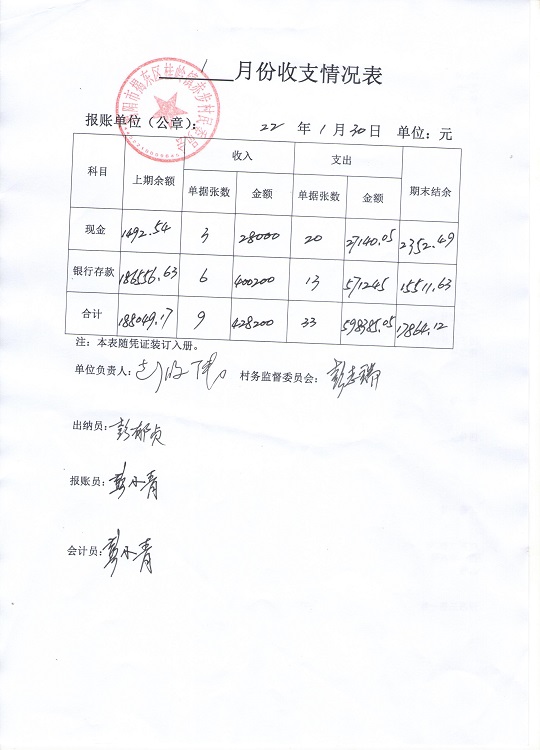 1 月份收支情况表
报账单位（公章）： 22 年 1 月 30 日 单位：元
科目 上期余额 收入 支出 期末结余
单据张数 金额 单据张数 金额
现金 1492.54 3 28000 20 27140.05 2352.49
银行存款 186556.63 6 400200 13 571245 15511.63
合计 188049.17 9 428200 33 598385.05 17864.12
注：本表随凭证装订入册。
单位负责人： 村务监督委员会：
出纳员：彭郁贞
报账员：彭小青
会计员：彭小青